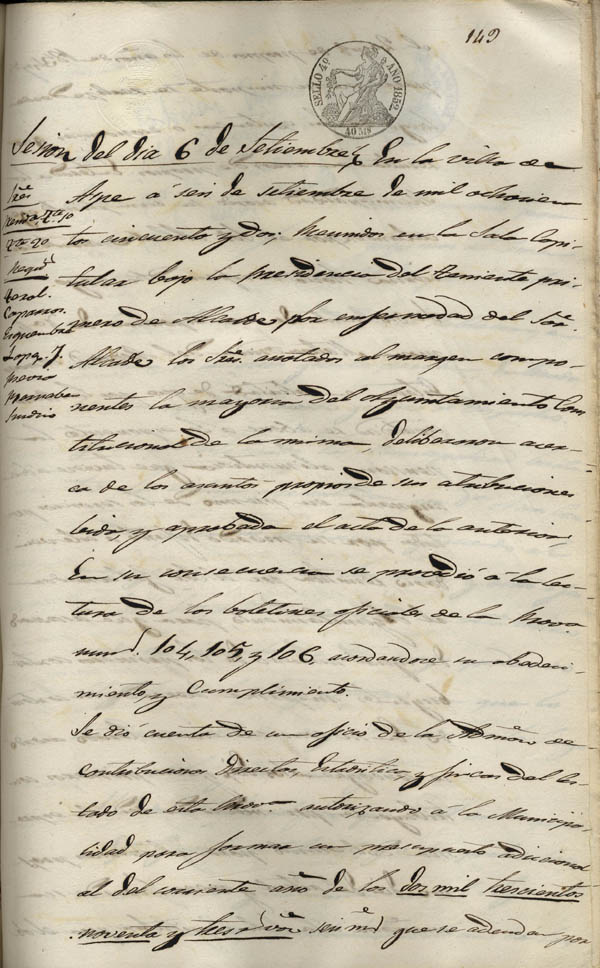 149
SELLO 4º AÑO 1852
40 MS
Sesion del dia 6 de Setiembre. En la villa de
Aspe á seis de setiembre de mil ochocien
tos cincuenta y dos, Reunidos en la Sala Capi-
tular bajo la Presidencia del teniente pri-
mero de Alcalde por enfermedad del Sor.
Alcalde los Sres. anotados al margen compo-
nentes la mayoria del Ayuntamiento Cons
titucional de la misma, deliberaron acer-
ca de los asuntos propios de sus atribuciones
leida, y aprobada el acta de la anterior,
En su consecuencia se procedió á la lec-
tura de los boletines oficiales de la Prova.
nums. 104, 105, y 106, acordandose su obedeci-
miento, y cumplimiento.
Se dió cuenta de un oficio de la Admon. de
Contribuciones Directas, Estadistica, y fincas del Es-
tado de esta Prova. autorizando á la Municipa-
lidad para formar un presupuesto adicional
al del corriente año de los dos mil trescientos
noventa y tres rs. von. seis ms. que se adeudan por
Sres.
Regid.
Coral.
Caparros.
Lopez J.